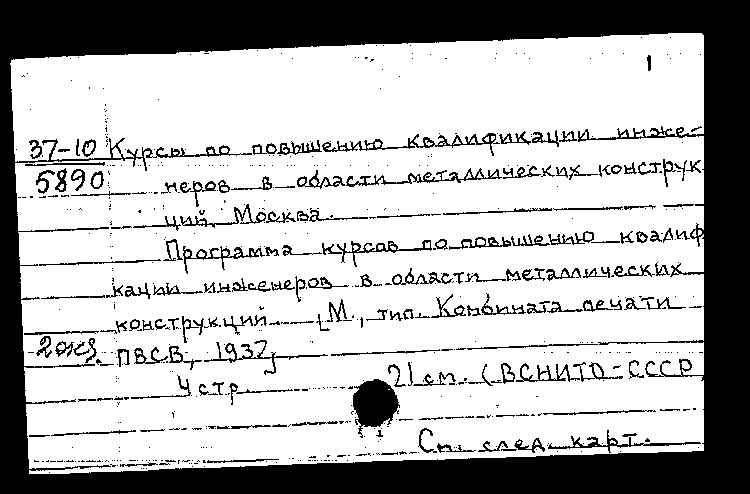 1
37-10 Курсы по повышению квалификации инже-
5890 неров в области металлических конструк
ций. Москва.
Программа курсов по повышению квалиф
кации инженеров в области металлических
конструкций. [М., тип. Комбината печати
2 экз. ПВСВ, 1937]
4 стр. 21 см. (ВСНИТО-СССР
См. след. карт.